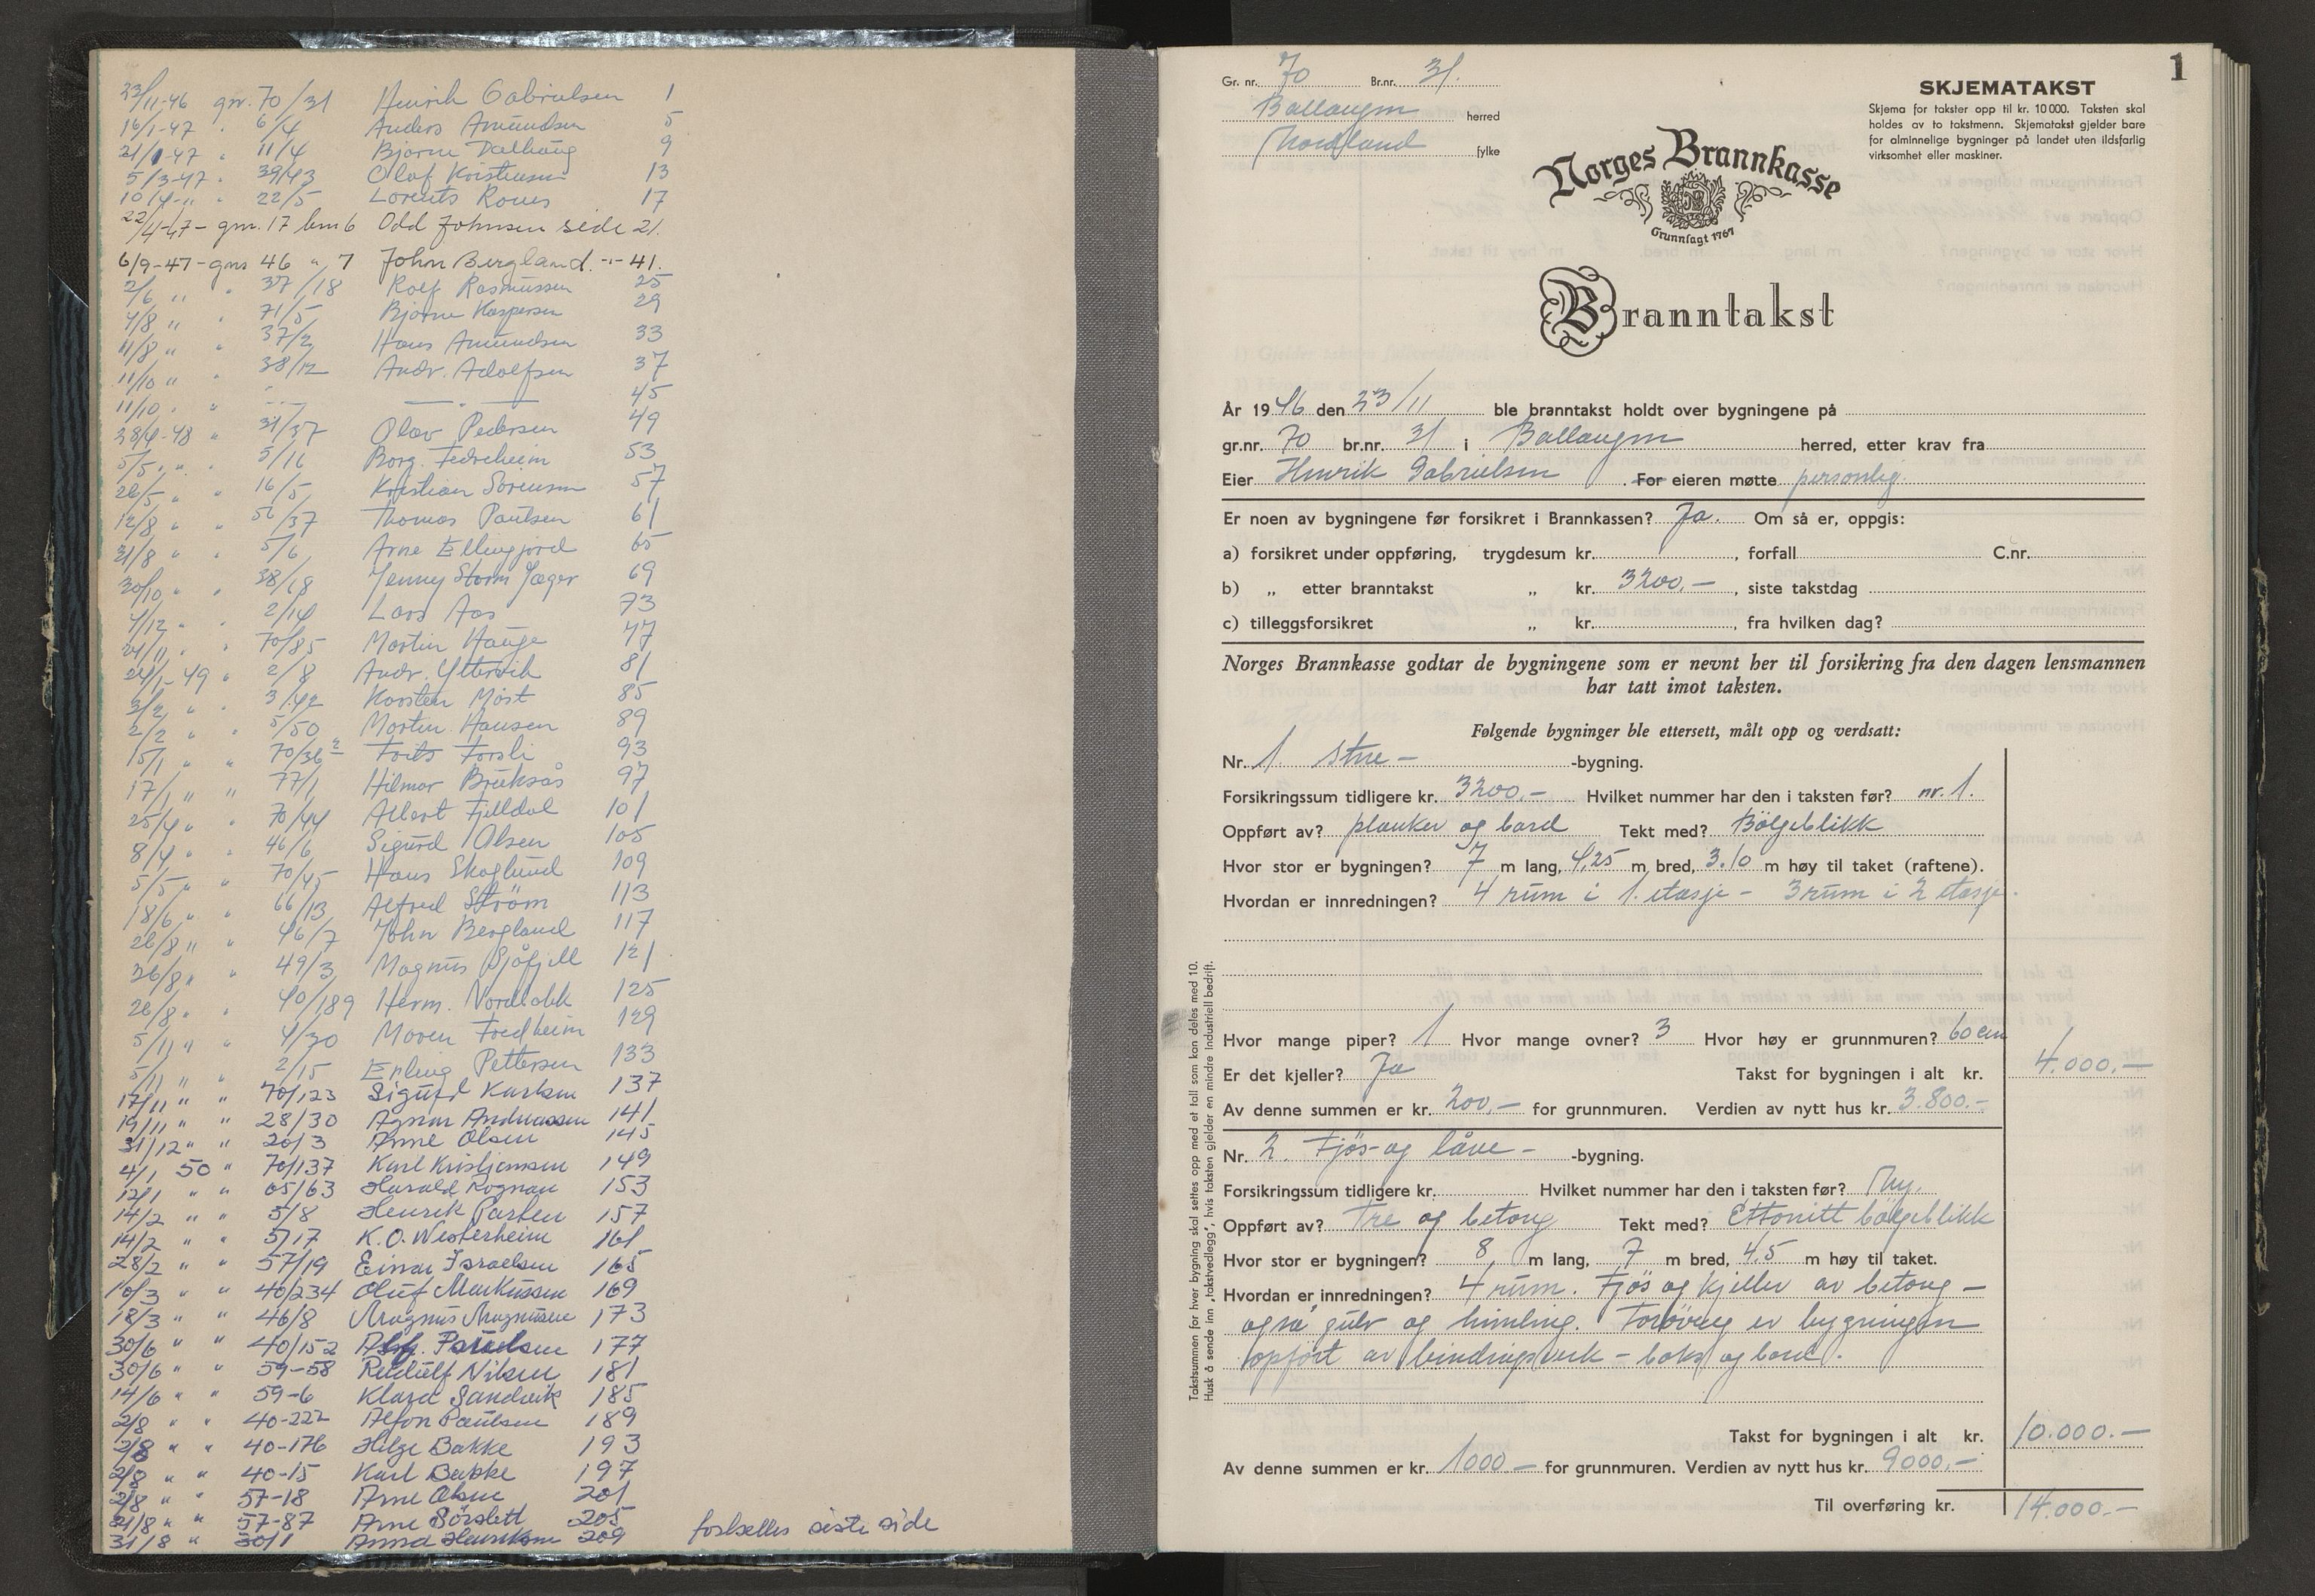 23/11-46 gnr. 70/31 Henrik Gabrielsen 1
16/1-47 " 6/4 Anders Amundsen 5
21/1-47 " 11/4 Bjarne Dalhaug 9
5/3-47 " 39/43 Olaf Kristensen 13
10/4-" " 22/5 Lorents 17
22/4-47 - gnr. 17 bnr 6 Odd Johnsen side 21.
6/9-47 - gnr 46 " 7 John Bergland. -"- 41.
2/6 " " 37/18 Rolf Rasmussen 25
4/8 " " 71/5 Bjarne Kaspersen 29
11/8 " " 37/2 Hans Amundsen 33
11/10 " " 38/12 Andr. Adolfsen 37
11/10 " " -"- — " — 45
28/4-48 " 31/37 Olav Pedersen 49
5/5 " " 5/16 Borg. Fedreheim 53
26/5 " " 16/5 Kristian Sørensen 57
12/8 " " 56/37 Thomas Paulsen 61
31/8 " " 5/6 Arne Ellingjord 65
30/10 " " 38/18 Jenny Storm Jæger 69
4/12 " " 2/14 Lars Aas 73
21/11 " " 70/85 Martin Hauge 77
24/1-49 " 2/8 Andr. Yttervik 81
3/2 " " 3/42 Karsten Møst 85
2/2 " " 5/50 Martin Hansen 89
15/1 " " 70/36 2 Forsli 93
17/1 " " 77/1 Hilmar 97
25/4 " " 70/44 Albert Fjelldal 101
8/4 " " 46/6 Sigurd Olsen 105
5/5 " " 70/45 Hans Skoglund 109
18/6 " " 66/13 Alfred Strøm 113
26/8 " " 46/7 John Bergland 117
26/8 " " 49/3 Magnus Sjåfjell 121
26/8 " " 40/189 Herm. 125
5/11 " " 4/30 Fredheim 129
5/11 " " 2/15 Erling Pettersen 133
17/11 " " 70/123 Sigurd Karlsen 137
19/11 " " 28/30 Agnar Andreassen 141
31/12 " " 20/3 Arne Olsen 145
4/1 50 " 70/137 Karl Kristjansen 149
12/1 " " 65/63 Harald Rognan 153
14/2 " " 5/8 Henrik 157
14/2 " " 5/17 K. O. Westerheim 161
28/2 " " 57/19 Einar Israelsen 165
10/3 " " 40/234 Oluf Markussen 169
18/3 " " 46/8 Magnus Magnussen 173
30/6 " " 40/152 177
30/6 " " 59-58 Rudulf Nilsen 181
14/6 " " 59-6 Klara Sandvik 185
2/8 " " 40-222 Alfon Paulsen 189
2/8 " " 40-176 Helge Bakke 193
2/8 " " 40-15 Karl Bakke 197
2/8 " " 57-18 Arne Olsen 201
21/8 " " 57-87 Arne Sörslett 205
31/8 " 30/1 Anna Henriksen 209 fortsettes siste side
1
Gr. nr. 70 Br.nr. 31.
Ballangen herred
Nordland fylke
SKJEMATAKST
Skjema for takster opp til kr. 10 000. Taksten skal
holdes av to takstmenn. Skjematakst gjelder bare
for alminnelige bygninger på landet uten ildsfarlig
virksomhet eller maskiner.
Norges Brannkasse
Grunnlagt 1767
Branntakst
År 1946 den 23/11 ble branntakst holdt over bygningene på
gr.nr. 70 br.nr. 31 i Ballangen herred, etter krav fra
Eier Henrik Gabrielsen . For eieren møtte personlig.
Er noen av bygningene før forsikret i Brannkassen? Ja. Om så er, oppgis:
a) forsikret under oppføring, trygdesum kr. , forfall C.nr.
b) „ etter branntakst „ kr. 3200,- , siste takstdag
c) tilleggsforsikret „ kr. , fra hvilken dag?
Norges Brannkasse godtar de bygningene som er nevnt her til forsikring fra den dagen lensmannen
har tatt imot taksten.
Følgende bygninger ble ettersett, målt opp og verdsatt:
Nr. 1. Stue - -bygning.
Forsikringssum tidligere kr. 3200.- Hvilket nummer har den i taksten før? nr. 1.
Oppført av? planker og bord Tekt med? Bølgeblikk
Hvor stor er bygningen? 7 m lang, 4,25 m bred, 3.10 m høy til taket (raftene).
Hvordan er innredningen? 4 rum i 1. etasje - 3 rum i 2 etasje.
Hvor mange piper? 1 Hvor mange ovner? 3 Hvor høy er grunnmuren? 60 cm
Er det kjeller? Ja Takst for bygningen i alt kr. 4.000.-
Av denne summen er kr. 200,- for grunnmuren. Verdien av nytt hus kr. 3.800.-
Nr. 2. Fjøs- og låve - -bygning.
Forsikringssum tidligere kr. Hvilket nummer har den i taksten før? Ny.
Oppført av? Tre og betong Tekt med? Ettonitt bølgeblikk
Hvor stor er bygningen? 8 m lang, 7 m bred, 4,5 m høy til taket.
Hvordan er innredningen? 4 rum. Fjøs og kjeller av betong -
også gulv og himling. Forøvrig er bygningen
oppført av bindingsverk - og bord.
Takst for bygningen i alt kr. 10.000.-
Av denne summen er kr. 1000 - for grunnmuren. Verdien av nytt hus kr. 9000.-
Til overføring kr. 14.000.-
Takstsummen for hver bygning skal settes opp med et tall som kan deles med 10.
Husk å sende inn „takstvedlegg“, hvis taksten gjelder en mindre industriell bedrift.